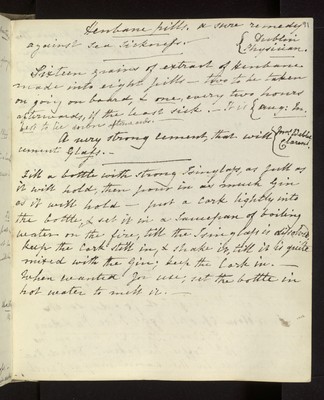 Henbane pills. a sure remedy
against Sea Sickness. { Dublin Physician.
Sixteen grains of extract of Henbane
made into eight pills — two to be taken
on going on board, & one, every two hours
afterwards, if the least sick. — It is
best to lie down afterwards.
A very strong cement, that will
cement Glass. —
Fill a bottle with strong Isinglass, as full as
it will hold, then pour in as much Gin
as it will hold — put a Cork lightly into
the bottle, & set it in a Saucepan of boiling
water on the fire, till the Isinglass is dissolved
keep the Cork still in, & shake it, till it is quite
mixed with the Gin; keep the Cork in. —
When wanted for use, set the bottle in
hot water to melt it. —